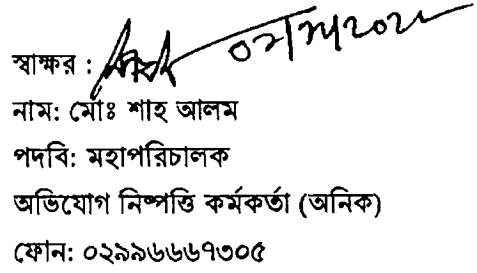 স্বাক্ষর :
নাম: মোঃ শাহ আলম
পদবি: মহাপরিচালক
অভিযোগ নিষ্পত্তি কর্মকর্তা (অনিক)
ফোন: ০২৯৯৬৬৬৭৩০৫